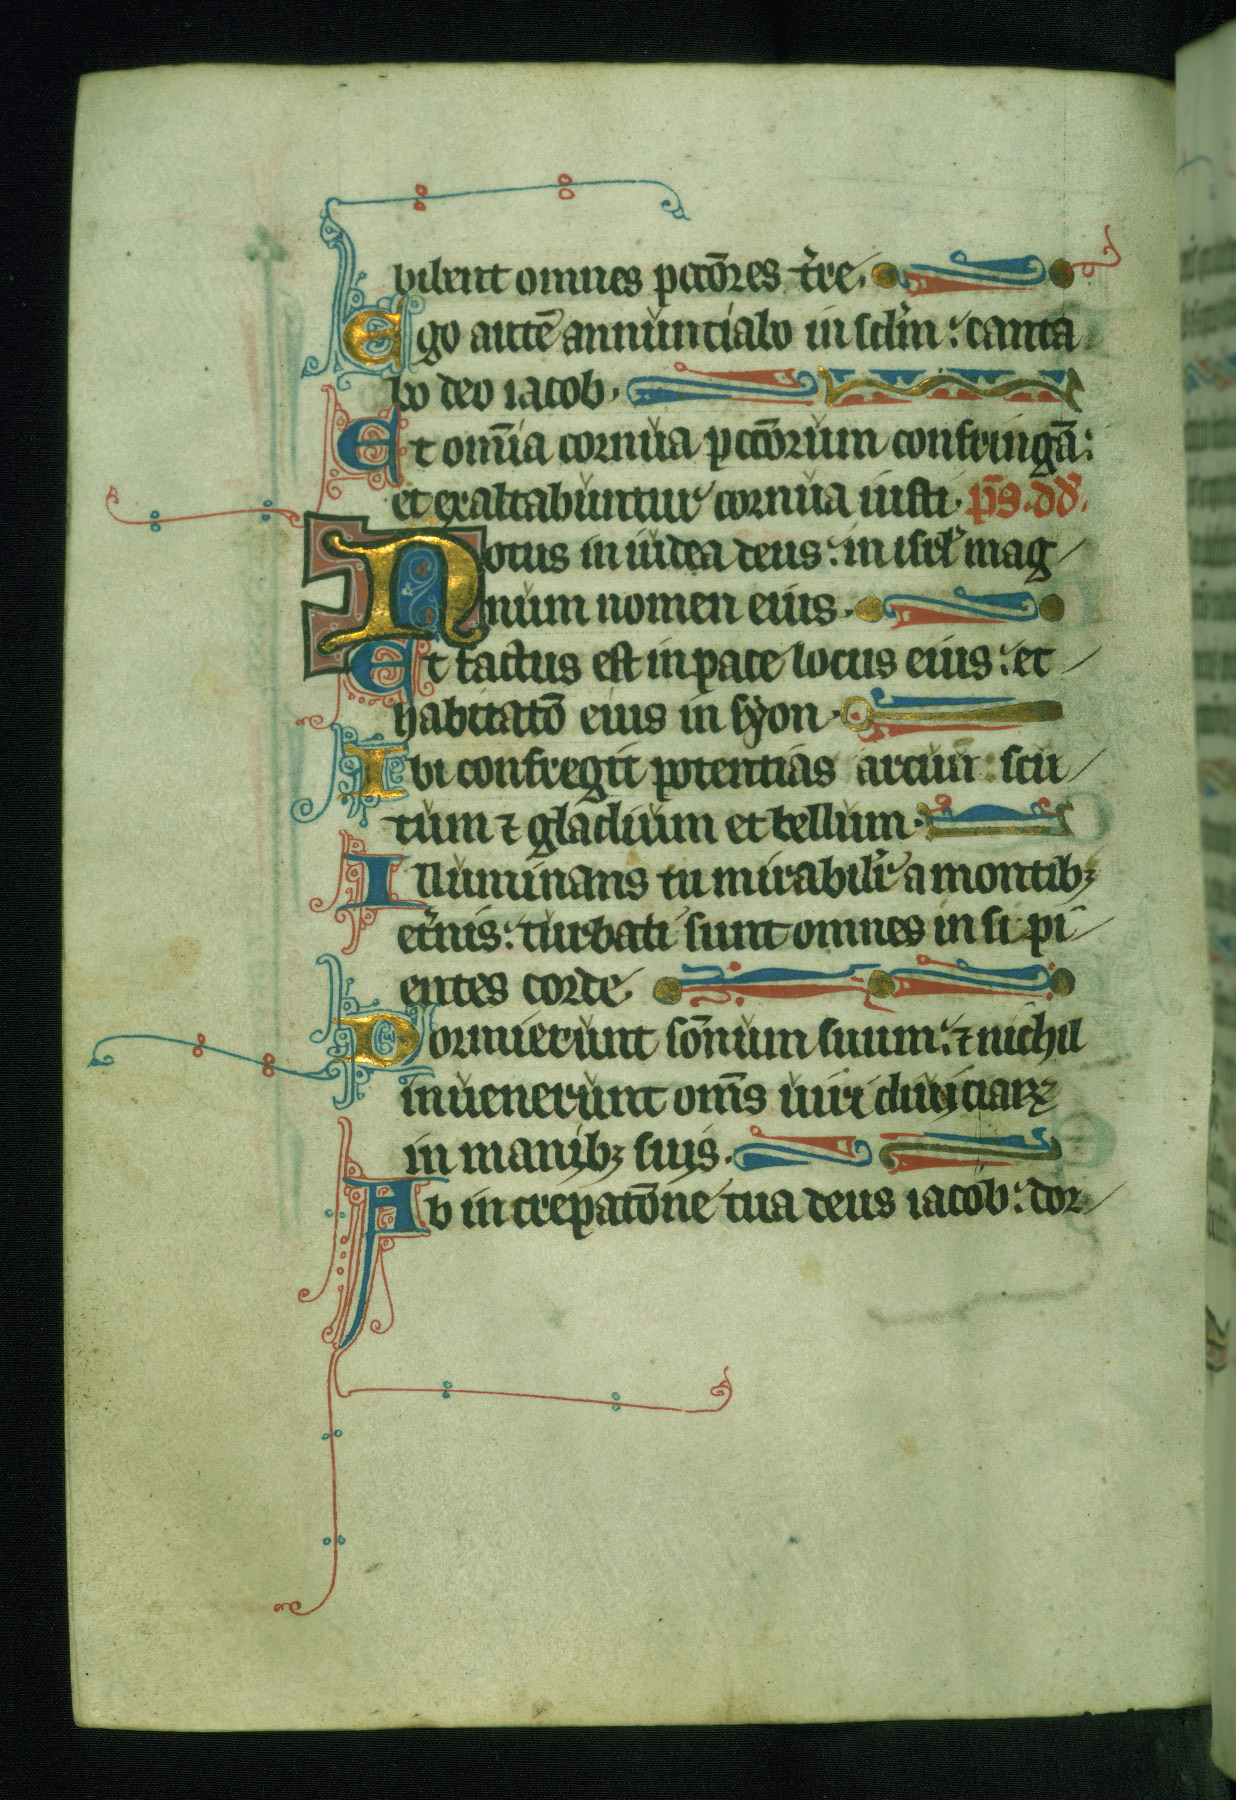 bibent omnes pccō̄res tr̄re.
Ego autē annunciabo in sclm̄: canta
bo deo iacob.
Et om̄ia cornua pccōrum confringā:
et exaltabuntur cornua iusti. p̄s. dd̄.
Notus in iudea deus: in isrl̄ mag
num nomen eius.
Et factus est in pace locus eius: et
habitatō eius in syon.
Ibi confregit potentias arcuū scu
tum ⁊ gladium et bellum.
Illuminans tu mirabilir̄ a montibꝫ
etr̄nis: turbati sunt omnes insipi
entes corde.
Dormierunt sōnum suum: ⁊ nichil
inuenerunt om̄s uiri diuiciaꝝ
in manibꝫ suis.
Ab increpatōne tua deus iacob: dor